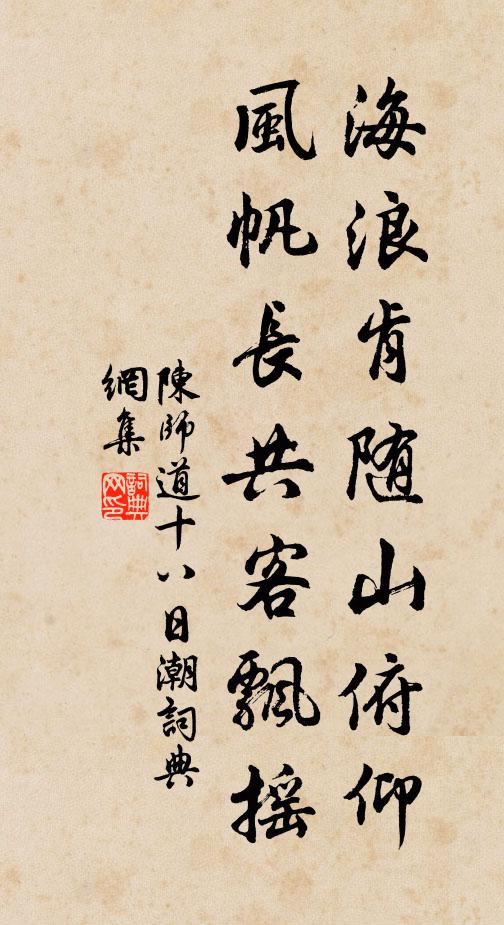 海浪肯随山俯仰
風帆長共客飄摇
陳師道十八日潮詞典
網集
詞典
网印